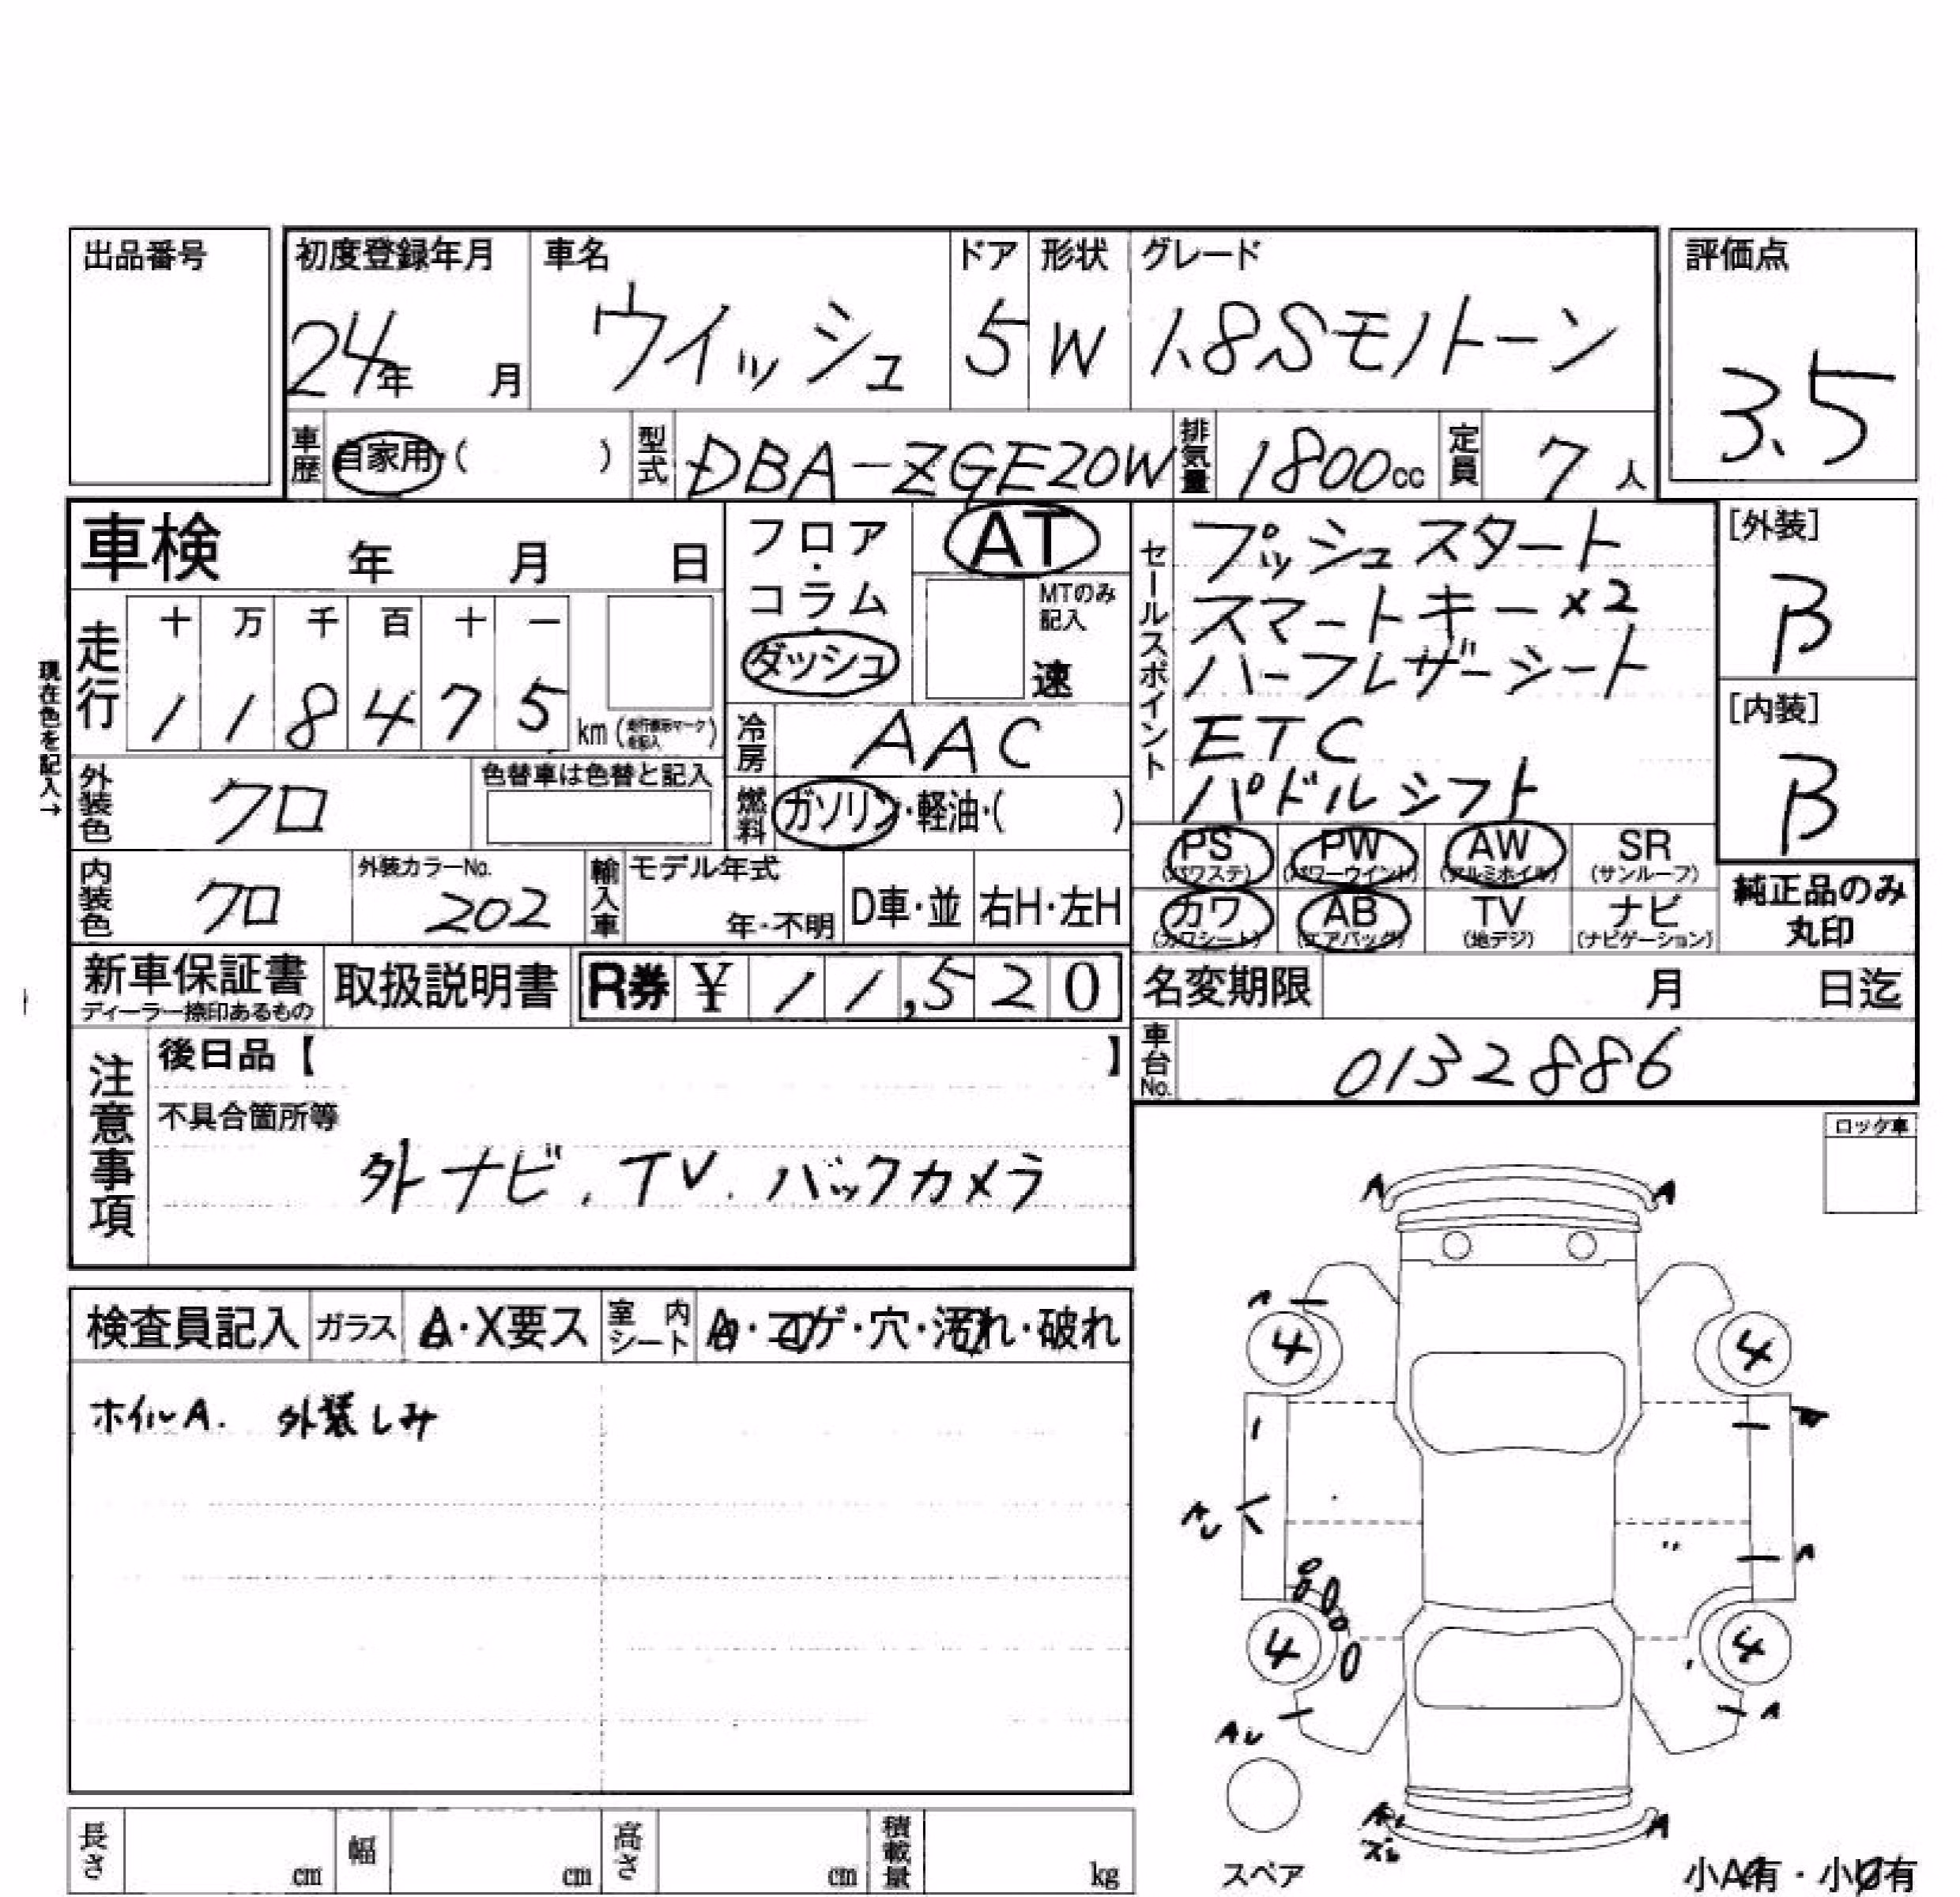 出品番号
初度登録年月 車名 ドア 形状 グレード 評価点
24年 月 ウイッシュ 5 W 1.8Sモノトーン 3.5
車歴 自家用・( ) 型式 DBA-ZGE20W 排気量 1800cc 定員 7人
車検 年 月 日
フロア・コラム・ダッシュ AT
MTのみ記入 速
現在色を記入→
走行 十 万 千 百 十 一
1 1 8 4 7 5 km
冷房 AAC
燃料 ガソリン・軽油・( )
セールスポイント
プッシュスタート
スマートキー×2
ハーフレザーシート
ETC
パドルシフト
[外装]
B
[内装]
B
外装色 クロ 色替車は色替と記入
内装色 クロ 外装カラーNo. 202 輸入車 モデル年式 年・不明 D車・並 右H・左H
PS (パワステ) PW (パワーウインド) AW (アルミホイル) SR (サンルーフ)
カワ (カワシート) AB (エアバッグ) TV (地デジ) ナビ (ナビゲーション)
純正品のみ
丸印
新車保証書 取扱説明書 R券 ¥ 11,520
ディーラー捺印あるもの
名変期限 月 日迄
車台No. 0132886
注意事項
後日品【 】
不具合箇所等
外ナビ、TV、バックカメラ
ロック車
検査員記入 ガラス A・X要ス 室内シート A・コゲ・穴・汚れ・破れ
ホイルA. 外装しみ
A A
A
4 4
AU
A
4 4
AU A
A
スペア
小A有・小U有
長さ cm 幅 cm 高さ cm 積載量 kg